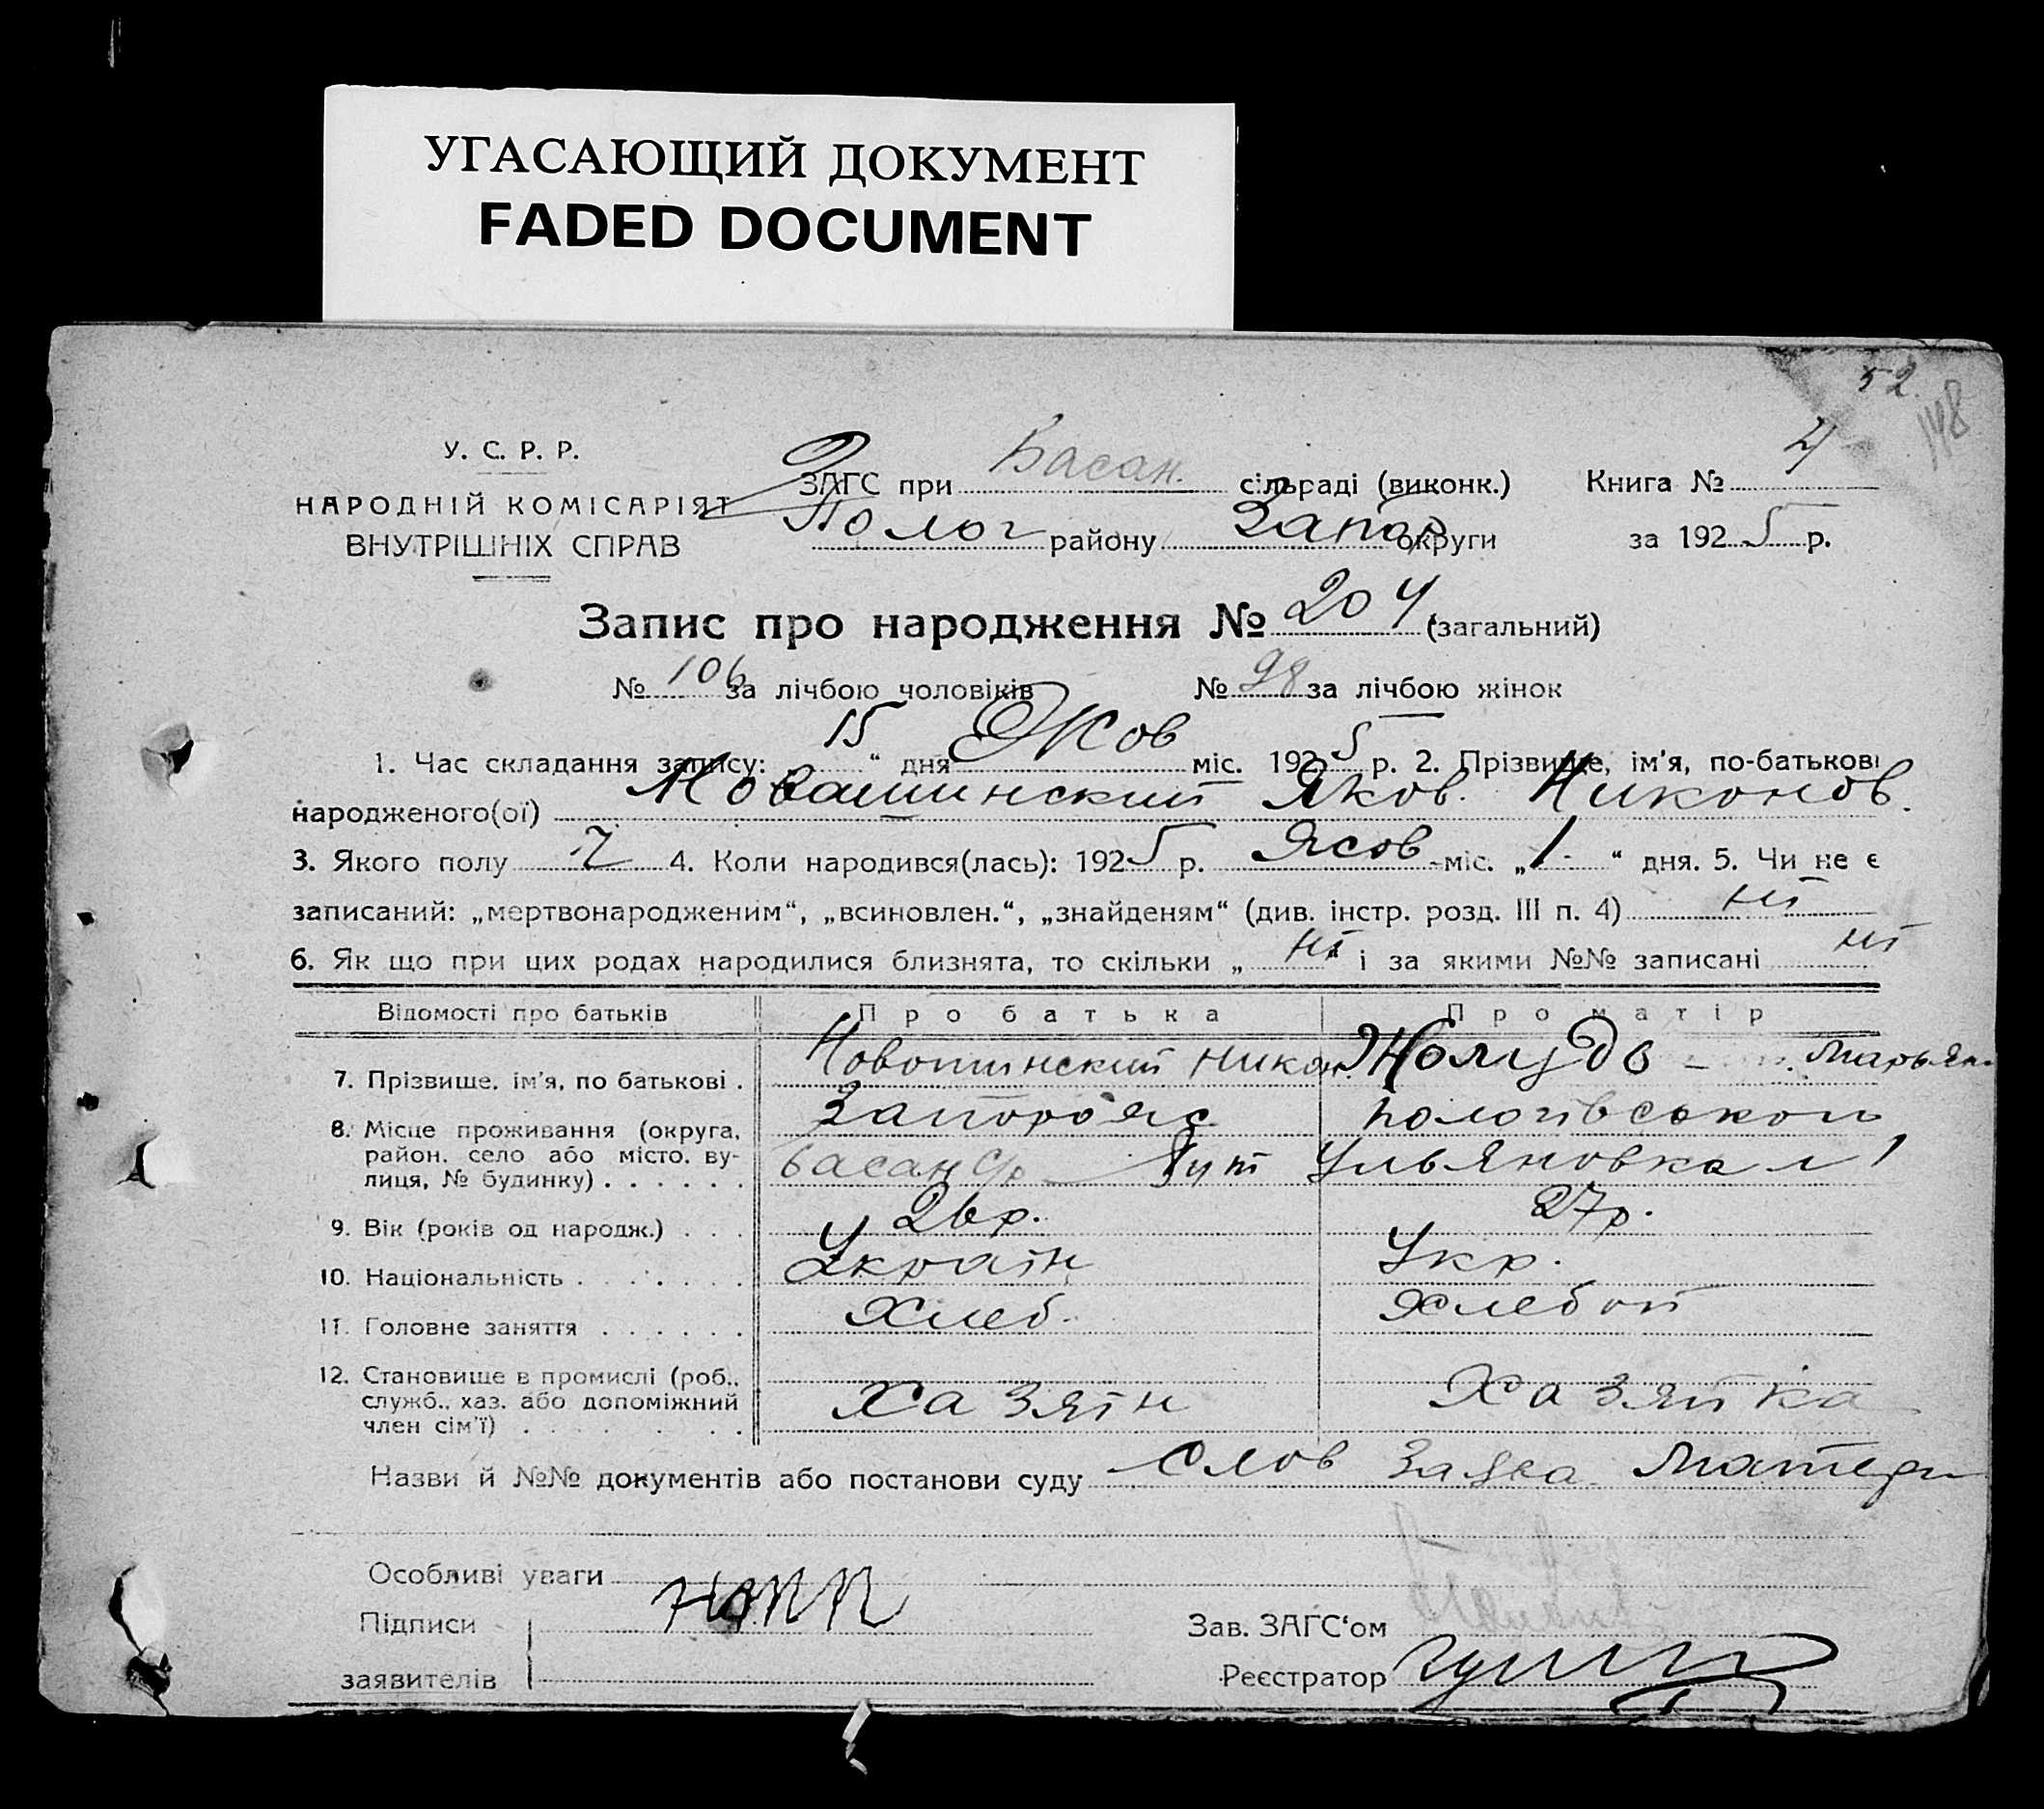 УГАСАЮЩИЙ ДОКУМЕНТ
FADED DOCUMENT
52
148
У. С. Р. Р.
НАРОДНІЙ КОМІСАРІЯТ
ВНУТРІШНІХ СПРАВ
ЗАГС при Басан. сільраді (виконк.) Книга № 4
Полог району Запор округи за 1925 р.
Запис про народження № 204 (загальний)
№ 106 за лічбою чоловіків № 98 за лічбою жінок
1. Час складання запису: 15 “ дня Жов міс. 1925 р. 2. Прізвище, ім'я, по-батькові
народженого(ої) Новашинский Яков. Никонов.
3. Якого полу 4. Коли народився(лась): 1925 р. Жовт міс. „1“ дня. 5. Чи не є
записаний: „мертвонародженим“, „всиновлен.“, „знайденям“ (див. інстр. розд. III п. 4) ні
6. Як що при цих родах народилися близнята, то скільки „ ні і за якими №№ записані ні
Відомості про батьків Про батька Про матір
7. Прізвише, ім'я, по батькові . Новошинский Никон. Марьян.
8. Місце проживання (округа, Запорож Пологівськом
район, село або місто, ву- Басан с/р Хут Ульяновка
лиця, № будинку) . . . . . .
9. Вік (років од народж.) . . . 26 р. 27 р.
10. Національність . . . . . . Україн Укр.
11. Головне заняття . . . . . . Хлеб. Хлебоп
12. Становище в промислі (роб.,
служб., хаз. або допоміжний Хазяїн Хазяйка
член сім'ї) . . . . . .
Назви й №№ документів або постанови суду Слов Заява Матери
Особливі уваги
Підписи Зав. ЗАГС‘ом
заявителів Реєстратор